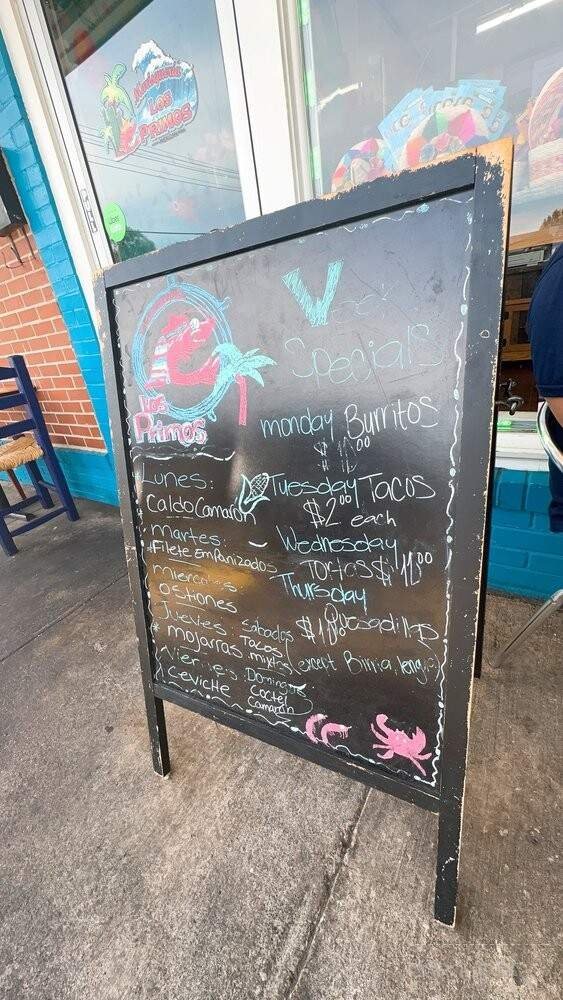 LOS
PRIMOS
Uber
Week
Specials
Los
Primos
monday Burritos
$ 11.00
Tuesday Tacos
$2.00 each
Wednesday
Tortas $11.00
Thursday
Quesadillas
(except Birria, lengua)
Lunes:
Caldo Camaron
martes:
Filete Empanizados
miercoles:
ostiones
Jueves:
mojarras
Viernes
Ceviche
Sabados
Tacos
mixtos
Domingos
Coctel
Camaron